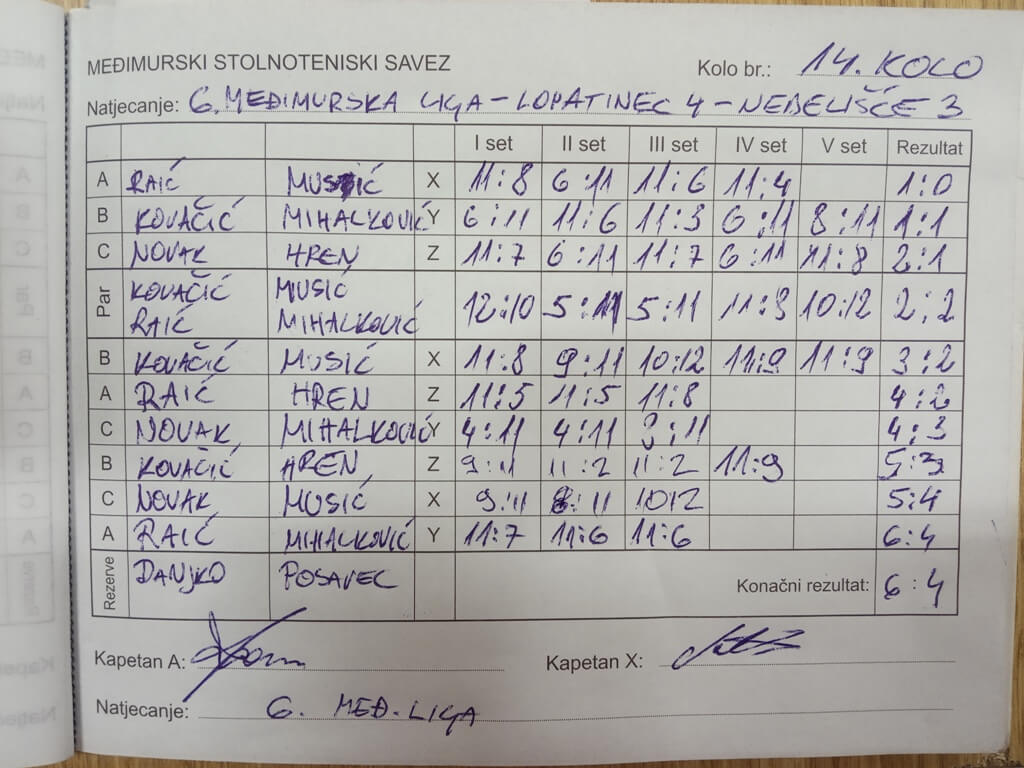 MEĐIMURSKI STOLNOTENISKI SAVEZ Kolo br.: 14. KOLO
Natjecanje: 6. MEĐIMURSKA LIGA - LOPATINEC 4 - NEDELIŠĆE 3
I set II set III set IV set V set Rezultat
A RAIĆ MUSIĆ X 11:8 6:11 11:6 11:4 1:0
B KOVAČIĆ MIHALKOVIĆ Y 6:11 11:6 11:3 6:11 8:11 1:1
C NOVAK HREN Z 11:7 6:11 11:7 6:11 11:8 2:1
Par KOVAČIĆ MUSIĆ
RAIĆ MIHALKOVIĆ 12:10 5:11 5:11 11:8 10:12 2:2
B KOVAČIĆ MUSIĆ X 11:8 9:11 10:12 11:9 11:9 3:2
A RAIĆ HREN Z 11:5 11:5 11:8 4:2
C NOVAK MIHALKOVIĆ Y 4:11 4:11 8:11 4:3
B KOVAČIĆ HREN Z 9:11 11:2 11:2 11:9 5:3
C NOVAK MUSIĆ X 9:11 8:11 10:12 5:4
A RAIĆ MIHALKOVIĆ Y 11:7 11:6 11:6 6:4
Rezerve DANJKO POSAVEC Konačni rezultat: 6:4
Kapetan A: Kapetan X:
Natjecanje: 6. MEĐ. LIGA